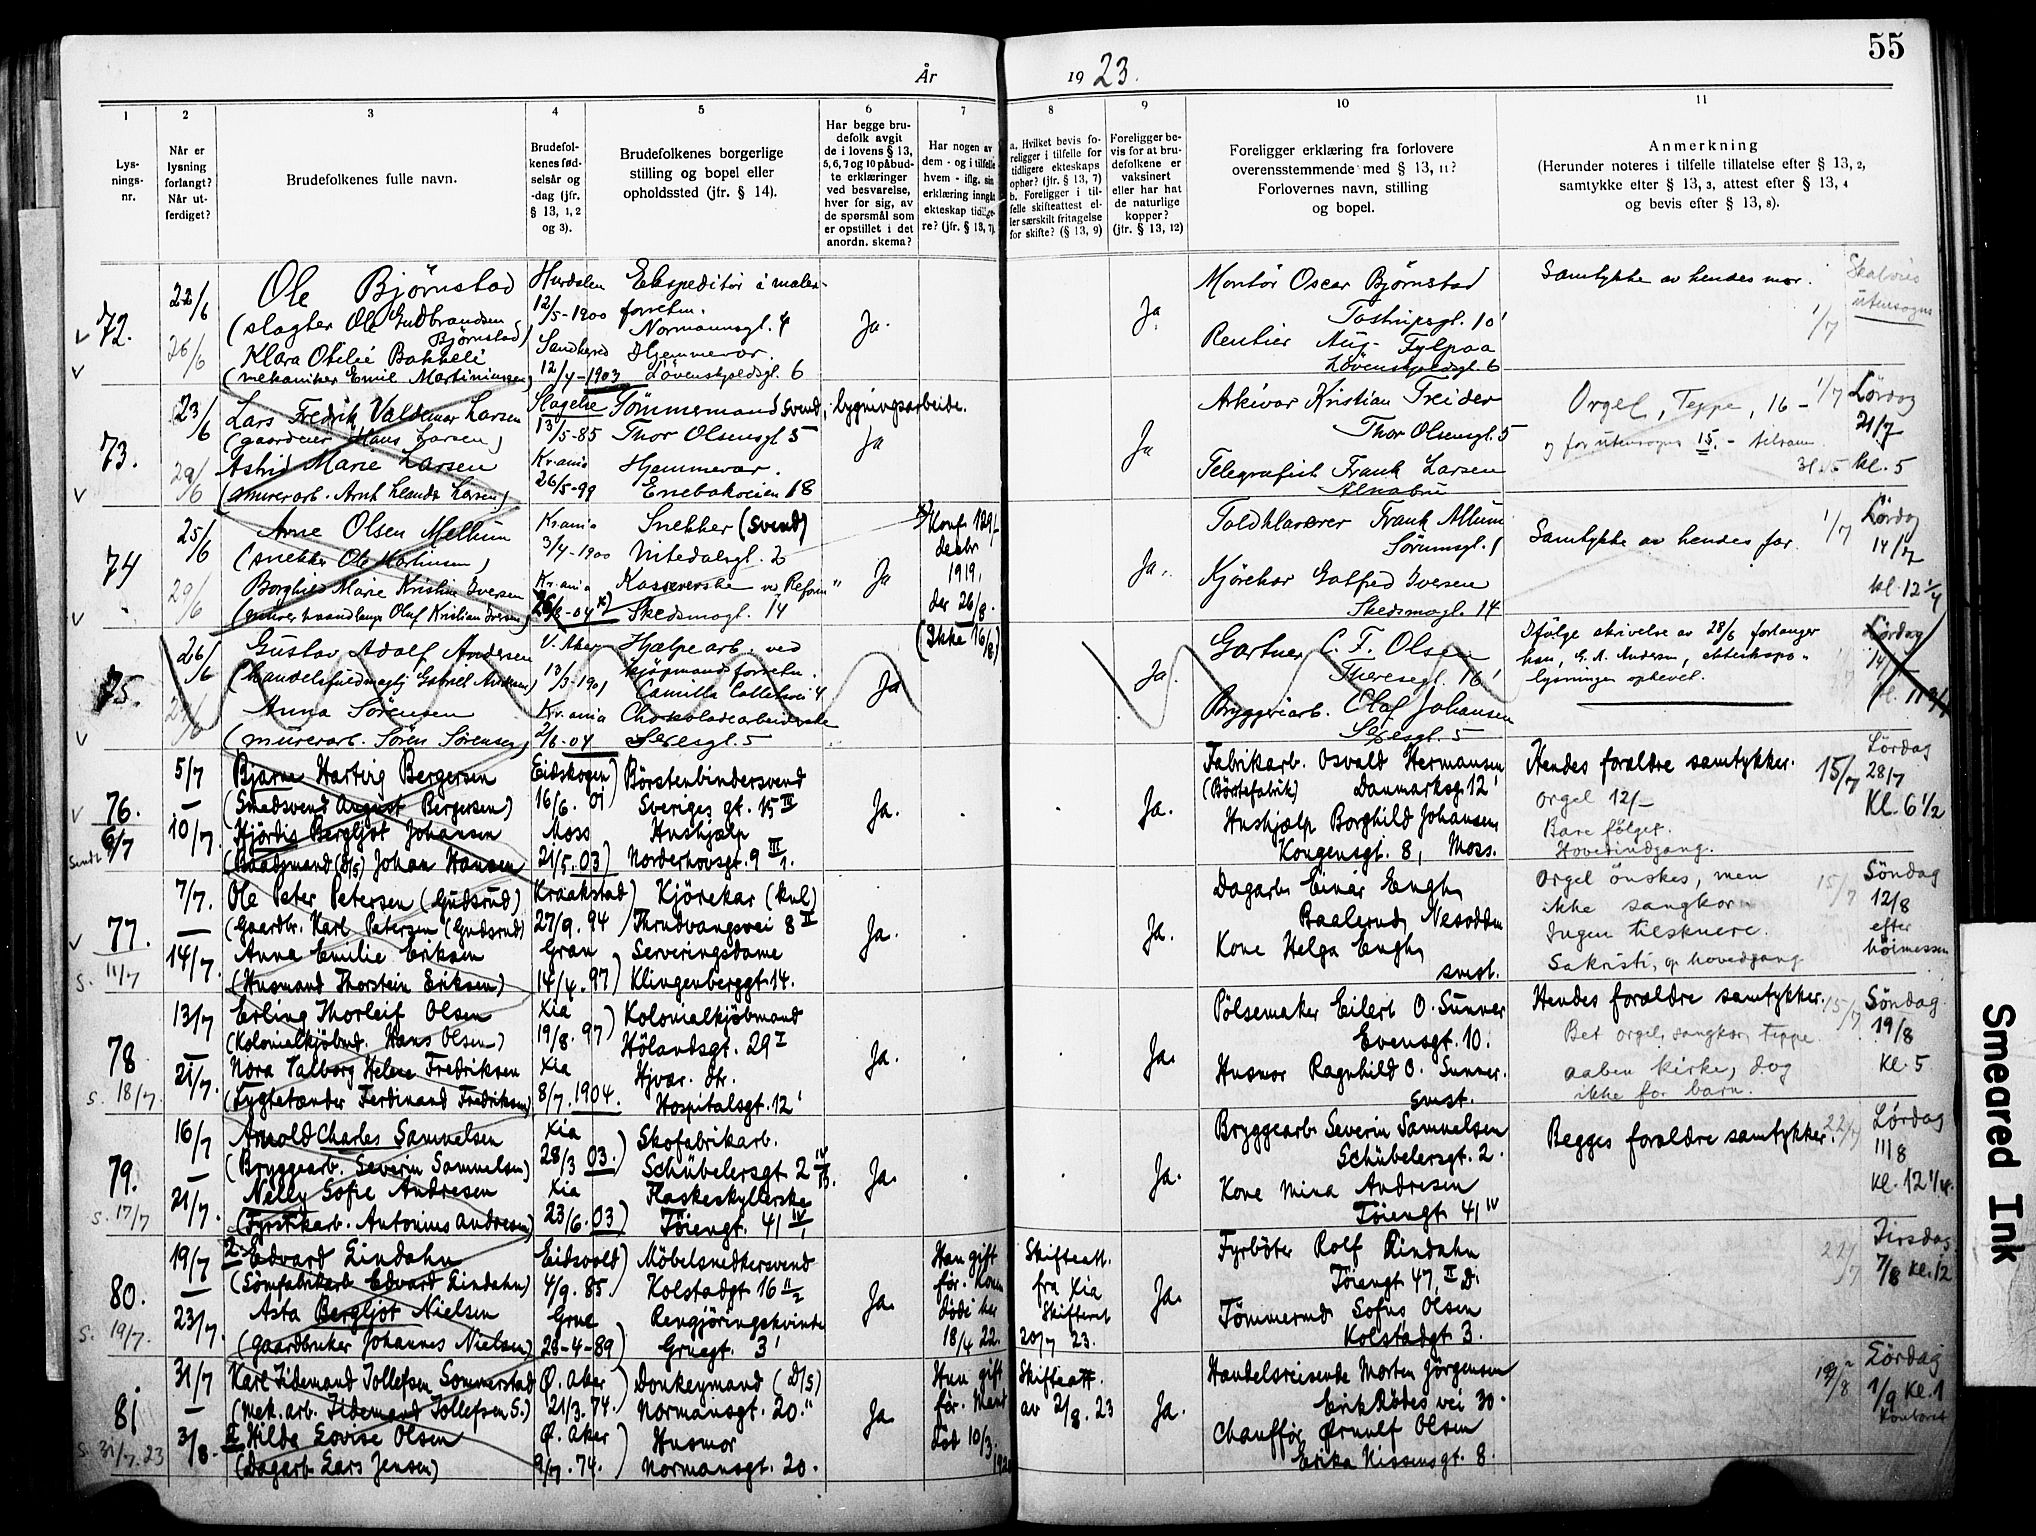 55
År 1923.
1
2
3
4
5
6
7
8
9
10
11
Lys-
nings-
nr.
Når er
lysning
forlangt?
Når ut-
ferdiget?
Brudefolkenes fulle navn.
Brudefol-
kenes fød-
selsår og
-dag (jfr.
§ 13, 1, 2
og 3).
Brudefolkenes borgerlige
stilling og bopel eller
opholdssted (jfr. § 14).
Har begge bru-
defolk avgit
de i lovens § 13,
5, 6, 7 og 10 påbud-
te erklæringer
ved besvarelse,
hver for sig, av
de spørsmål som
er opstillet i det
anordn. skema?
Har nogen av
dem - og i tilfelle
hvem - iflg. sin
erklæring inngått
ekteskap tidlige-
re? (jfr. § 13, 7).
a. Hvilket bevis fo-
religger i tilfelle for
tidligere ekteskaps
ophør? (jfr. § 13, 7)
b. Foreligger i til-
felle skifteattest el-
ler særskilt fritagelse
for skifte? (§ 13, 9)
Foreligger be-
vis for at bru-
defolkene er
vaksinert
eller har hat
de naturlige
kopper?
(jfr. § 13, 12)
Foreligger erklæring fra forlovere
overensstemmende med § 13, 11?
Forlovernes navn, stilling
og bopel.
Anmerkning
(Herunder noteres i tilfelle tillatelse efter § 13, 2,
samtykke efter § 13, 3, attest efter § 13, 4
og bevis efter § 13, 8).
72.
22/6
26/6
Ole Bjørnstad
(slagter Ole Gudbrandsen
Bjørnstad)
Klara Otilie Bakkeli
(mekaniker Emil Martiniussen)
Hurdalen
12/5-1900
12/4-1903
Ekspeditør i maler-
forretn.
Normannsgt. 4
Hjemmevær.
Løvenskjoldsgt. 6
Ja.
Ja.
Montør Oscar Bjørnstad
Tostrupsgt. 10
Rentier Aug.
Løvenskjoldsgt. 6
Samtykke av hendes mor.
1/7
utensogns
73.
23/6
29/6
Lars Fredrik Valdemar Larsen
(gaardeier Hans Larsen)
Astrid Marie Larsen
(murerarb. Arnt Larsen)
Slagelse
13/5-85
Kr.ania
26/5-99
Tømmermandssvend, bygningsarbeide.
Thor Olsensgt. 5
Hjemmevær.
Enebakveien 18
Ja
Ja
Arkivar Kristian Treider
Thor Olsensgt. 5
Telegrafist Frank Larsen
Alnabru
Orgel, Teppe, 16 - 1/7
og for utensogns 15. - tilsam.
Lördag
21/7
kl. 5
74
25/6
29/6
Arne Olsen Mellum
(snekker Ole Martinsen)
Borghild Marie Kristine Iversen
(murerhaandlanger Oluf Kristian Iversen)
Kr.ania
3/4-1900
Kr.ania
26/8-04
Snekker (svend)
Nitedalsgt. 2
Kassererske ved "Reform"
Skedsmogt. 14
Ja
Konf. 129/
decbr
1919,
der 26/8.
(Ikke 16/8)
Ja.
Toldklarerer Frank Allum
Sørumsgt. 1
Kjørekar Gotfred Iversen
Skedsmogt. 14
Samtykke av hendes far.
1/7
Lördag
14/7
kl. 12 1/4
75.
26/6
Gustav Adolf Andersen
(handelsfuldmægtig Gabriel Andersen)
Anna Sørensen
(murerarb. Søren Sørensen)
V. Aker
13/3-1901
Kr.ania
2/6-04
Hjælpearb. ved
kjøpmandsforretn.
Camilla Colletsvei 4
Chokoladearbeiderske
Sexesgt. 5
Ja
Ja.
Gartner C. F. Olsen
Theresegt. 16
Bryggeriarb. Olaf Johansen
Sexesgt. 5
Ifølge skrivelse av 28/6 forlanger
han, G. A. Andersen, ekteskaps-
lysningen ophevet.
Lördag
14/7
76.
5/7
—
10/7
Sendt 6/7
Bjarne Hartvig Bergersen
(Smedsvend August Bergersen)
Hjördis Bergljot Johansen
(Baadsmand (D/S) Johan Hansen
Eidskogen)
16/6. 01
Moss
21/5. 03)
Börstenbindersvend
Sveriges gt. 15 III
Hushjælp
Norderhovsgt. 9 III
Ja.
.
.
Ja.
Fabrikarb. Osvald Hermansen
(Börstefabrik) Danmarksg. 12
Hushjælp Borghild Johansen
Kongensgt. 8, Moss.
Hendes forældre samtykker.
Orgel 12/-
Bare følget.
Hovedindgang.
15/7
Lördag
28/7
Kl. 6 1/2
77.
7/7.
—
14/7.
s. 11/7
Ole Peter Petersen (Gudsrud)
(Gaardbr. Karl Petersen (Gudsrud)
Anna Emilie Eriksen
(Husmand Thorstein Eriksen)
Kraakstad)
27/9. 94
Gran
14/4. 97)
Kjörekar (kul)
Thrudvangsvei 8 II
Serveringsdame
Klingenberggt. 14.
Ja.
.
.
Ja.
Dagarb. Einar Engh,
Baalerud, Nesodden
Kone Helga Engh,
smst.
Orgel önskes, men
ikke sangkor.
Ingen tilskuere.
Sakristi, og hovedgang
15/7
Söndag
12/8
efter
höimessen
78
13/7
—
21/7.
s. 18/7.
Erling Thorleif Olsen
(Kolonialkjöbmd. Hans Olsen)
Nora Valborg Helene Fredriksen
(Lygtetænder Ferdinand Fredriksen)
Xia
19/8. 97)
Xia
8/7. 1904.
Kolonialkjöbmand
Hölandsgt. 29 I
Hjvær. dtr.
Hospitalsgt. 12
Ja.
.
.
Ja.
Pölsemaker Eilert O. Sunner
Evensgt. 10.
Husmor Ragnhild O. Sunner.
smst.
Hendes forældre samtykker.
Bet orgel, sangkor, teppe
aaben kirke, dog
ikke for barn.
15/7
Söndag
19/8
Kl. 5
79.
16/7
—
21/7.
s. 17/7
Arnold Charles Samuelsen
(Bryggearb. Severin Samuelsen)
Nelly Sofie Andresen
(Fyrstikarb. Antonius Andresen)
Xia
28/3 03.)
Xia
23/6. 03)
Skofabrikarb.
Schübelersgt 2 IV
Flaskeskyllerske
Töiengt. 41 IV
Ja.
.
.
Ja.
Bryggearb. Severin Samuelsen
Schübelersgt. 2.
Kone Mina Andresen
Töiengt 41 IV
Begges forældre samtykker.
22/7
Lördag
11/8
Kl. 12 1/4.
80.
19/7
—
23/7.
s. 19/7.
2. Edvard Lindahn
(Sömfabrikarb. Edvard Lindahn)
Asta Bergljot Nielsen
(gaardbruker Johannes Nielsen)
Eidsvold)
4/9. 85
Grue
28-4-89)
Möbelsnedkersvend
Kolstadgt 16 II
Rengjöringskvinde
Gruegt. 3
Ja.
Han gift
før. Konen
döde her
18/4 22.
Skifteatt.
fra Xia
Skifteret
20/7 23.
Ja.
Fyrböter Rolf Rindahn
Töiengt 47, II D.
Tömmermd. Sofus Olsen
Kolstadgt 3.
22/7
Tirsdag
7/8 Kl. 12
81
31/7
—
3/8.
s. 31/7. 23
Karl Tidemand Tollefsen Sommerstad
(Mek. arb. Tidemand Tollefsen S.)
II Hilda Lovise Olsen
(Dagarb. Lars Jensen)
Ø. Aker)
21/3. 74.
Ø. Aker
9/7. 74.)
Donkeymand (D/S)
Normansgt. 20."
Husmor
Normansgt. 20.
Ja.
Hun gift
før. Mand
död 10/3.
Skifteatt.
av 2/8. 23
Ja.
Handelsreisende Morten Jörgensen
Erik Rödes vei 30.
Chauffør Ørnulf Olsen
Erika Nissensgt. 8.
Lördag
1/9 Kl. 1
Kontoret
Smeared Ink